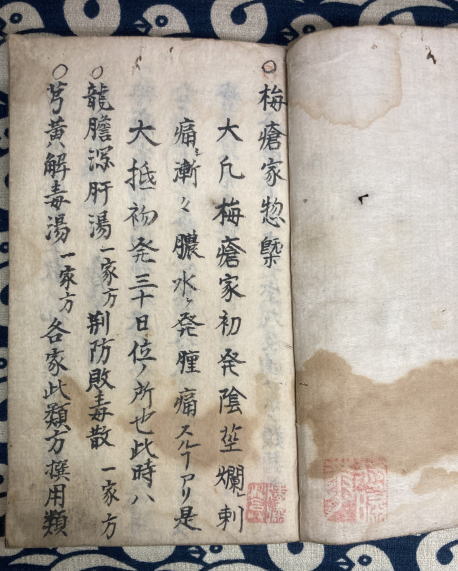 ○梅瘡家惣槩
大凡梅瘡家初発陰莖爛レ刺
痛ミ漸々膿水ヲ発腫痛スルヿアリ是
大抵初発三十日位ノ所也此時ハ
○龍膽深肝湯一家方荆防敗毒散一家方
○芎黄解毒湯一家方各家此類方撰用類